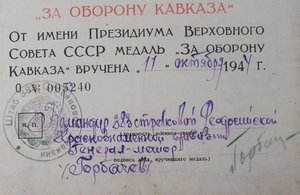 "ЗА ОБОРОНУ КАВКАЗА"
ОТ ИМЕНИ ПРЕЗИДИУМА ВЕРХОВНОГО
СОВЕТА СССР МЕДАЛЬ „ЗА ОБОРОНУ
КАВКАЗА" ВРУЧЕНА „11" октября 1944 г.
О. № 005240
Командир стрелковой
Краснознаменной дивизии
М.П.
Генерал-майор
подпись лица, вручившего медаль
/Горбачев/